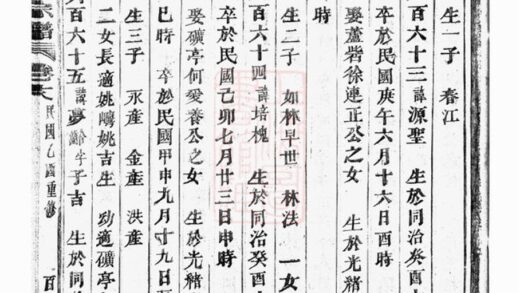 生一子 春江
百六十三 諱源聖 生於同治癸酉
卒於民國庚午六月十六日酉時
娶蘆砦徐連正公之女 生於光緒
時
生二子 如林早世 林法 一女
百六十四 諱培槐 生於同治癸酉
卒於民國己卯七月廿三日申時
娶礦亭何愛善公之女 生於光緒
巳時 卒於民國甲申九月十九日
生三子 永產 金產 洪產
二女長適姚嶹姚吉生 幼適礦亭
百六十五 諱夢 字子吉 生於同
民國乙酉重修 百